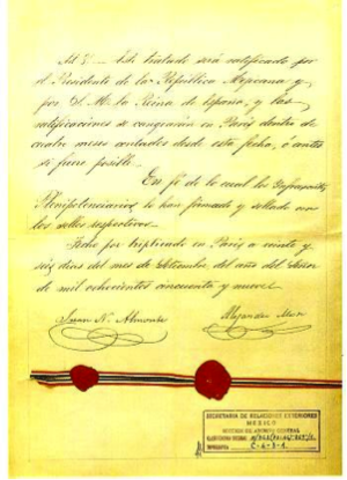 Art. V. Este tratado será ratificado por
el Presidente de la República Mexicana y
por S. M. la Reina de España, y las
ratificaciones se cangearán en París dentro de
cuatro meses contados desde esta fecha, ó antes
si fuere posible.
En fé de lo cual los Infrascritos
Plenipotenciarios lo han firmado y sellado con
los sellos respectivos.
Fecho por triplicado en París a veinte y
seis dias del mes de Setiembre del año del Señor
de mil ochocientos cincuenta y nueve.
Juan N. Almonte Alejandro Mon
SECRETARIA DE RELACIONES EXTERIORES
MEXICO